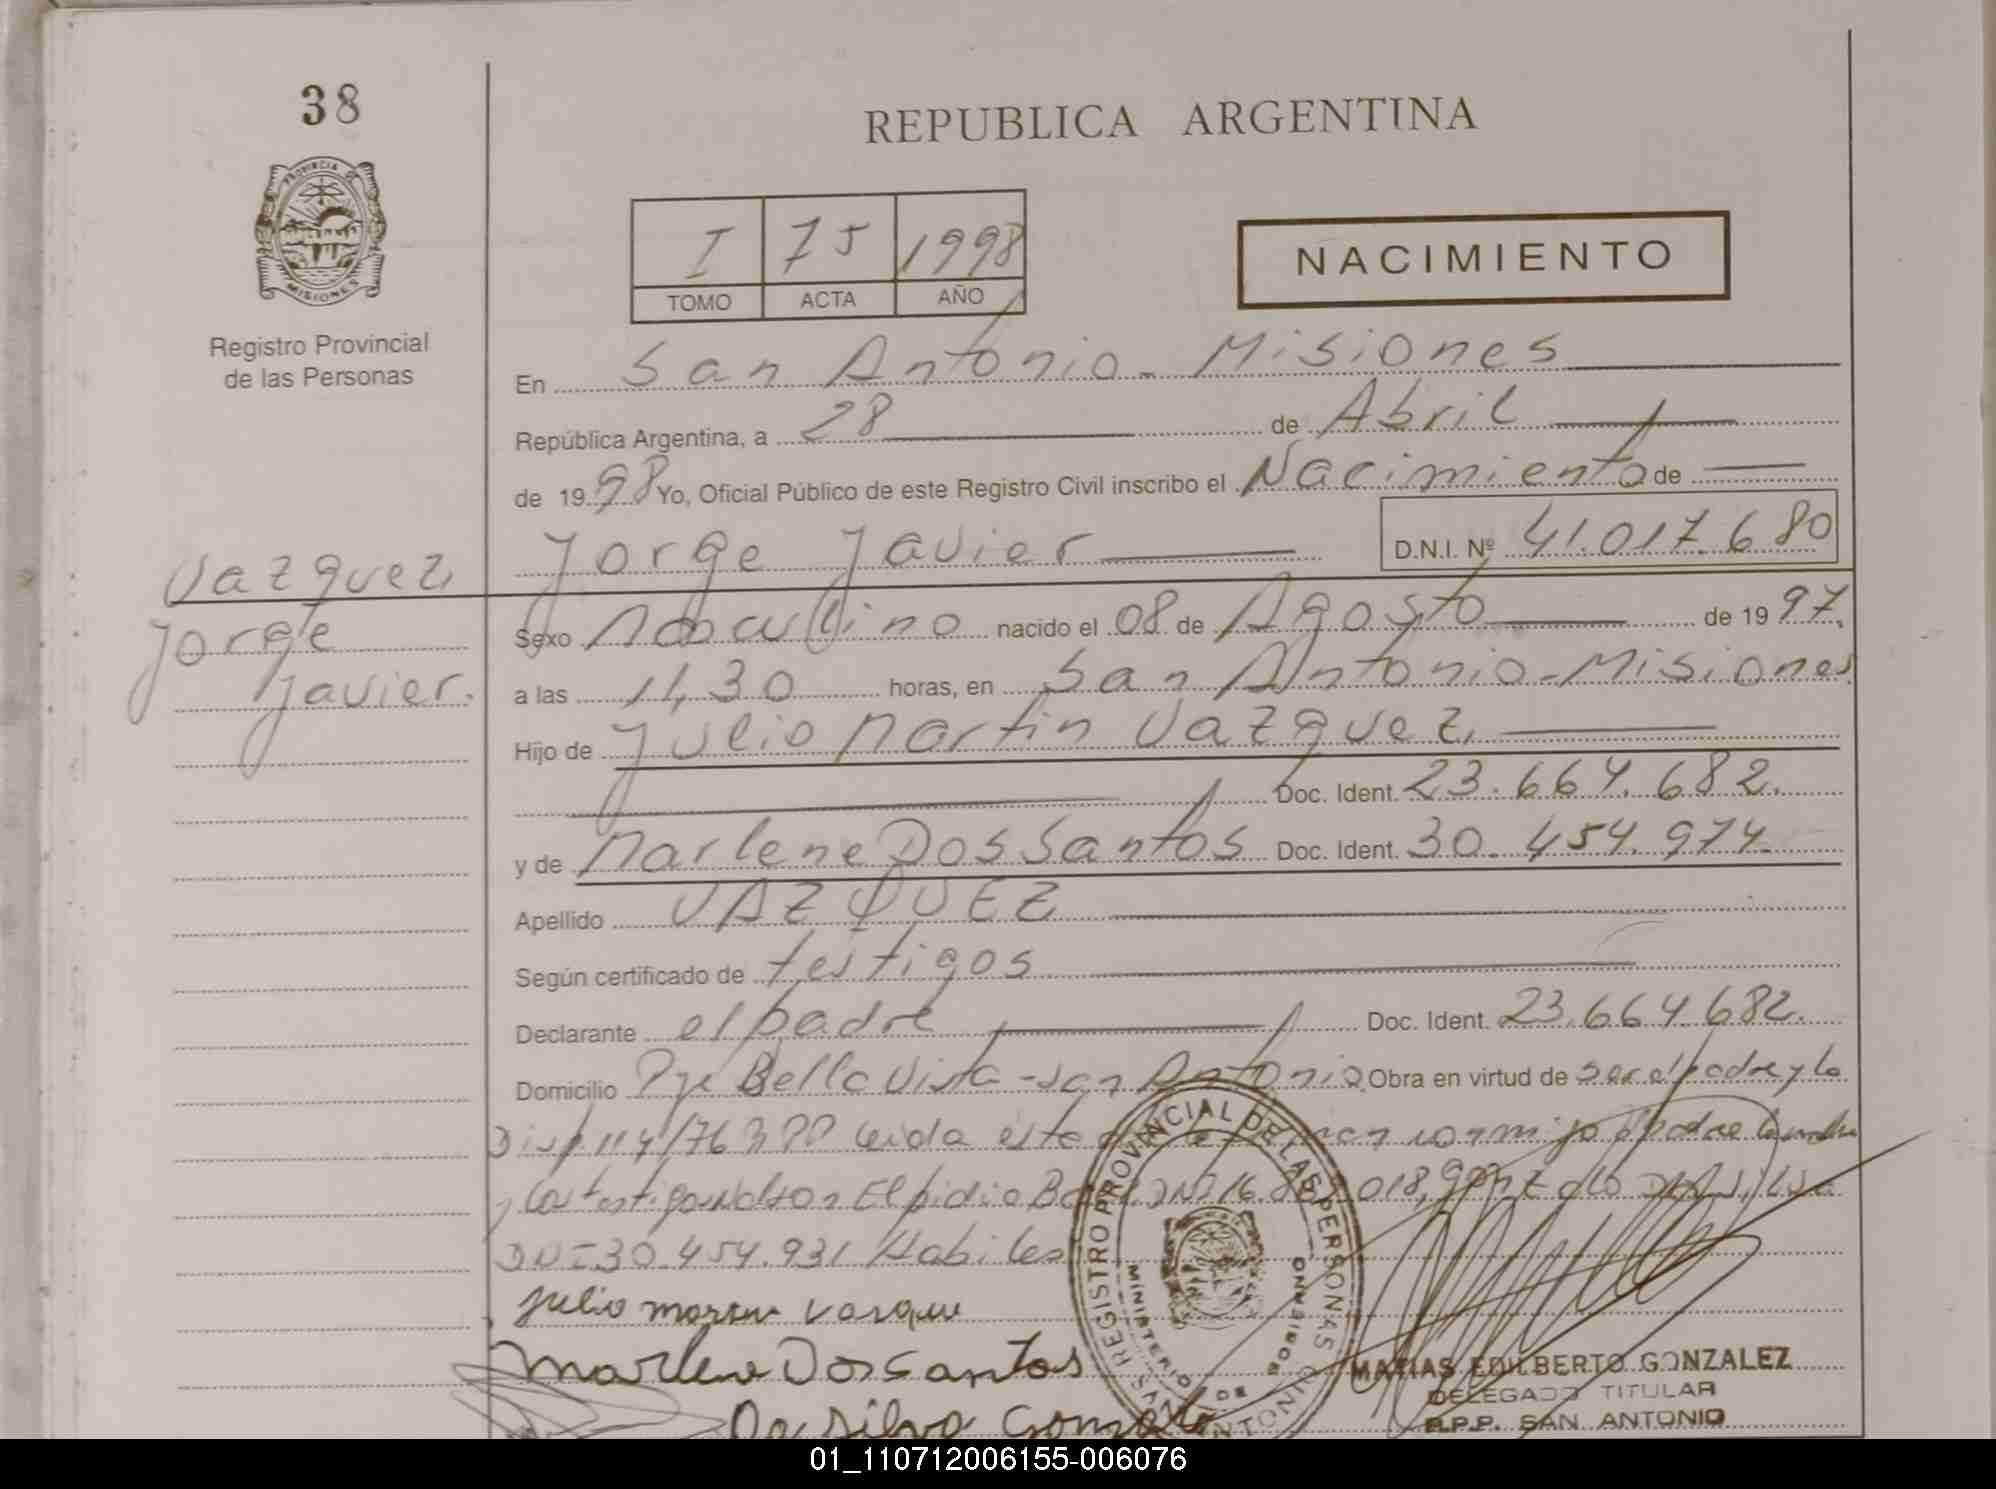 38
PROVINCIA DE
MISIONES
Registro Provincial
de las Personas
REPUBLICA ARGENTINA
I 75 1998
TOMO ACTA AÑO
NACIMIENTO
En San Antonio - Misiones
República Argentina, a 28 de Abril
de 1998 Yo, Oficial Público de este Registro Civil inscribo el Nacimiento de
Jorge Javier D.N.I. Nº 41.017.680
Vazquez,
Jorge
Javier.
Sexo Masculino nacido el 08 de Agosto de 1997,
a las 11,30 horas, en San Antonio - Misiones
Hijo de Julio Martin Vazquez,
Doc. Ident. 23.664.682.
y de Marlene Dos Santos Doc. Ident. 30.454.974.
Apellido VAZQUEZ
Según certificado de testigos
Declarante el padre Doc. Ident. 23.664.682.
Domicilio Pje Bella Vista - San Antonio Obra en virtud de ser el padre y la
Disp. 114/76 RPP Leida esta conmigo el padre la madre
y los testigos Elpidio DNI 16. 018, Gonzalo Da Silva
DNI 30.454.931 Habiles
Julio Vasque
Marlene Dos Santos
Da Silva Gonzalo
REGISTRO PROVINCIAL DE LAS PERSONAS
MINISTERIO DE GOBIERNO
SAN ANTONIO
MATIAS EDILBERTO GONZALEZ
DELEGADO TITULAR
R.P.P. SAN ANTONIO
01_110712006155-006076